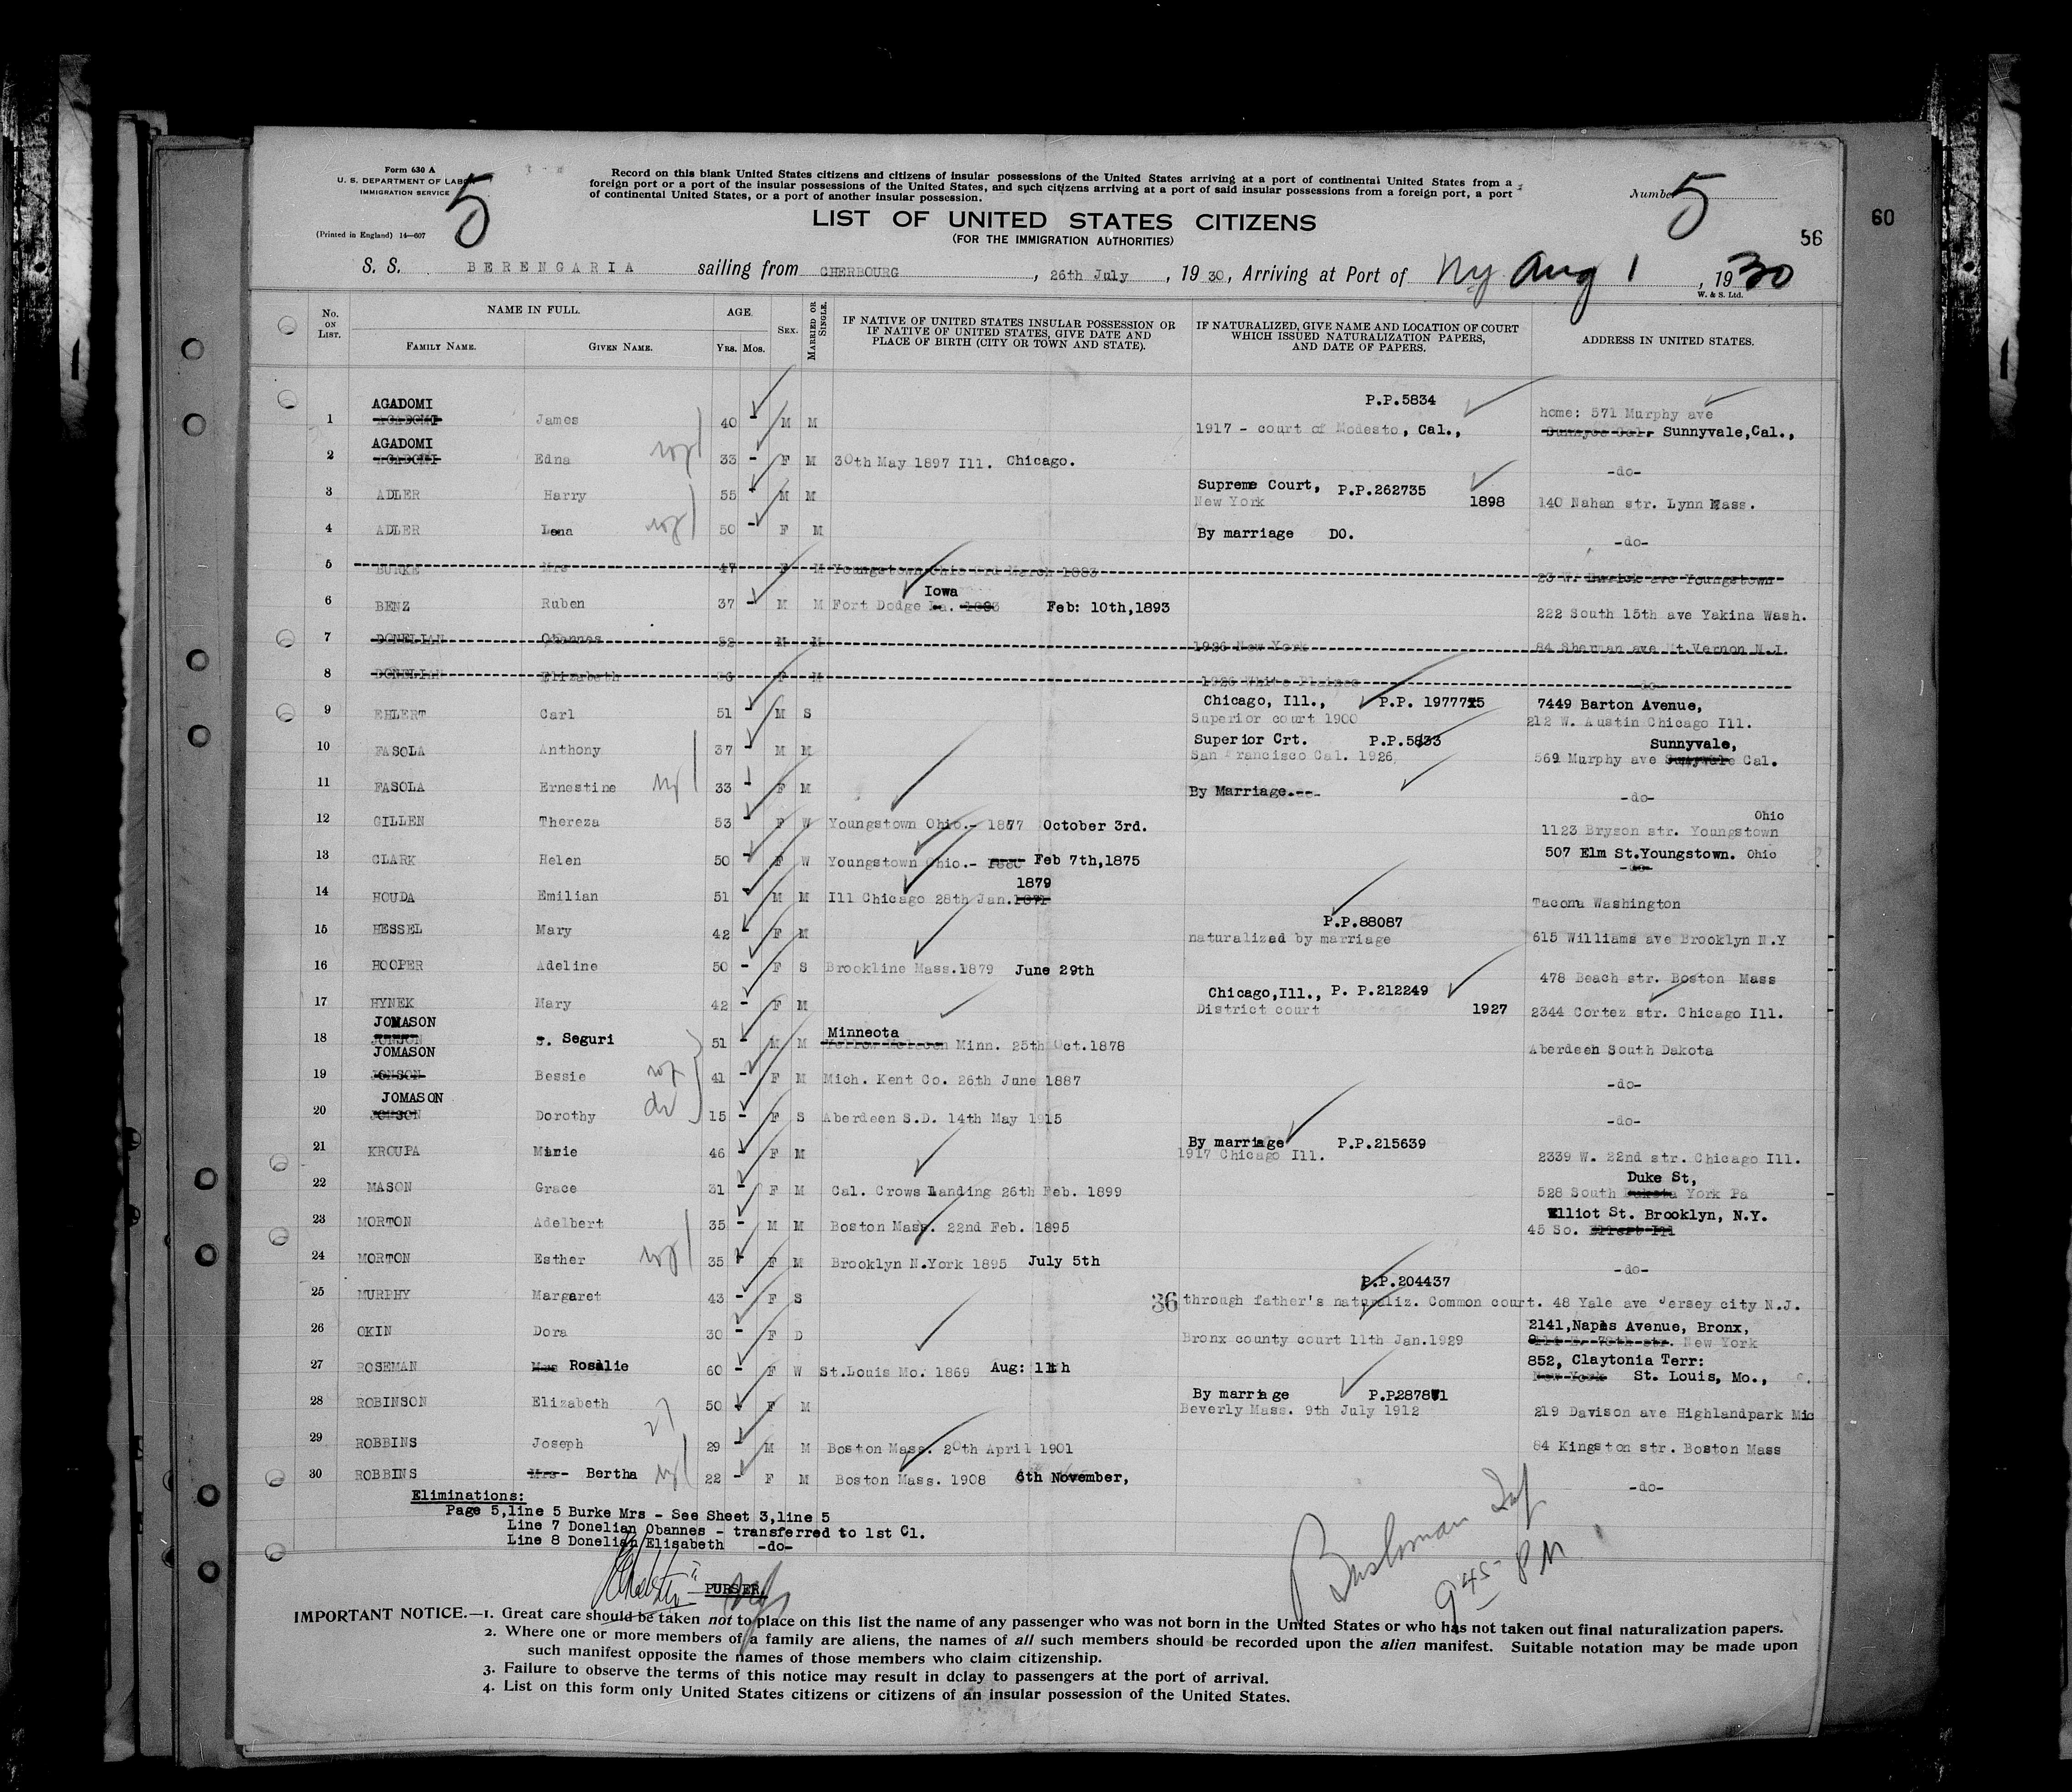 Form 630 A
U. S. DEPARTMENT OF LABOR
IMMIGRATION SERVICE
(Printed in England) 14—607
5
Record on this blank United States citizens and citizens of insular possessions of the United States arriving at a port of continental United States from a
foreign port or a port of the insular possessions of the United States, and such citizens arriving at a port of said insular possessions from a foreign port, a port
of continental United States, or a port of another insular possession.
Number 5
LIST OF UNITED STATES CITIZENS
(FOR THE IMMIGRATION AUTHORITIES)
56
60
S. S. BERENGARIA sailing from CHERBOURG, 26th July, 1930, Arriving at Port of Ny Aug 1, 1930
W. & S. Ltd.
No. ON LIST. NAME IN FULL. FAMILY NAME. GIVEN NAME. AGE. YRS. MOS. SEX. MARRIED OR SINGLE. IF NATIVE OF UNITED STATES INSULAR POSSESSION OR IF NATIVE OF UNITED STATES, GIVE DATE AND PLACE OF BIRTH (CITY OR TOWN AND STATE). IF NATURALIZED, GIVE NAME AND LOCATION OF COURT WHICH ISSUED NATURALIZATION PAPERS, AND DATE OF PAPERS. ADDRESS IN UNITED STATES.
AGADOMI P.P.5834
1 AGADOMI James 40 - M M 1917 - court of Modesto, Cal., home: 571 Murphy ave Sunnyvale,Cal.,
AGADOMI
2 AGADOMI Edna 33 - F M 30th May 1897 Ill. Chicago. -do-
3 ADLER Harry 55 - M M Supreme Court, New York P.P.262735 1898 140 Nahan str. Lynn Mass.
4 ADLER Lena 50 - F M By marriage DO. -do-
5 BURKE Mrs 47 F M Youngstown Ohio 3rd March 1883 23 W. ave Youngstown
6 BENZ Ruben 37 - M M Fort Dodge Iowa 1893 Feb: 10th,1893 222 South 15th ave Yakina Wash.
7 DONELIAN Obannes 52 M M 1926 New York 84 Sherman ave Mt.Vernon
8 DONELIAN Elizabeth F M 1926 White Plains -do-
9 EHLERT Carl 51 - M S Chicago, Ill., P.P. Superior court 1900 7449 Barton Avenue, 212 W. Austin Chicago Ill.
10 FASOLA Anthony 37 - M M Superior Crt. P.P.5833 San Francisco Cal. 1926 Sunnyvale, 569 Murphy ave Sunyvale Cal.
11 FASOLA Ernestine 33 - F M By Marriage.--- -do-
12 GILLEN Thereza 53 - F W Youngstown Ohio.- 1877 October 3rd. 1123 Bryson str. Youngstown Ohio
13 CLARK Helen 50 - F W Youngstown Ohio.- 1880 Feb 7th,1875 507 Elm St.Youngstown. Ohio -do-
14 HOUDA Emilian 51 - M M Ill Chicago 28th Jan. 1871 1879 Tacoma Washington
15 HESSEL Mary 42 - F M P.P.88087 naturalized by marriage 615 Williams ave Brooklyn N.Y
16 HOOPER Adeline 50 - F S Brookline Mass.1879 June 29th 478 Beach str. Boston Mass
17 HYNEK Mary 42 - F M Chicago,Ill., P. P.212249 District court 1927 2344 Cortez str. Chicago Ill.
JOMASON
18 JONSON S. Seguri 51 - M M Minneota Minn. 25th Oct.1878 Aberdeen South Dakota
JOMASON
19 JONSON Bessie 41 - F M Mich. Kent Co. 26th June 1887 -do-
JOMASON
20 JONSON Dorothy 15 - F S Aberdeen S.D. 14th May 1915 -do-
21 KROUPA Marie 46 - F M By marriage P.P.215639 1917 Chicago Ill. 2339 W. 22nd str. Chicago Ill.
22 MASON Grace 31 - F M Cal. Crows Landing 26th Feb. 1899 Duke St, 528 South Dakota York Pa
23 MORTON Adelbert 35 - M M Boston Mass. 22nd Feb. 1895 Elliot St. Brooklyn, N.Y. 45 So.
24 MORTON Esther 35 - F M Brooklyn N.York 1895 July 5th -do-
25 MURPHY Margaret 43 - F S P.P.204437 36 through father's naturaliz. Common court. 48 Yale ave Jersey city N.J.
26 OKIN Dora 30 - F D Bronx county court 11th Jan.1929 2141,Naples Avenue, Bronx, New York
27 ROSEMAN Mrs Rosalie 60 - F W St.Louis Mo. 1869 Aug: 11th 852, Claytonia Terr: New York St. Louis, Mo.,
28 ROBINSON Elizabeth 50 - F M By marriage Beverly Mass. 9th July 1912 219 Davison ave Highlandpark Mic
29 ROBBINS Joseph 29 - M M Boston Mass. 20th April 1901 84 Kingston str. Boston Mass
30 ROBBINS Mrs- Bertha 22 - F M Boston Mass. 1908 6th November, -do-
Eliminations:
Page 5,line 5 Burke Mrs - See Sheet 3,line 5
Line 7 Donelian Obannes - transferred to 1st Cl.
Line 8 Donelian Elisabeth -do-
PURSER.
9 45 PM
IMPORTANT NOTICE.—1. Great care should be taken not to place on this list the name of any passenger who was not born in the United States or who has not taken out final naturalization papers.
2. Where one or more members of a family are aliens, the names of all such members should be recorded upon the alien manifest. Suitable notation may be made upon
such manifest opposite the names of those members who claim citizenship.
3. Failure to observe the terms of this notice may result in delay to passengers at the port of arrival.
4. List on this form only United States citizens or citizens of an insular possession of the United States.